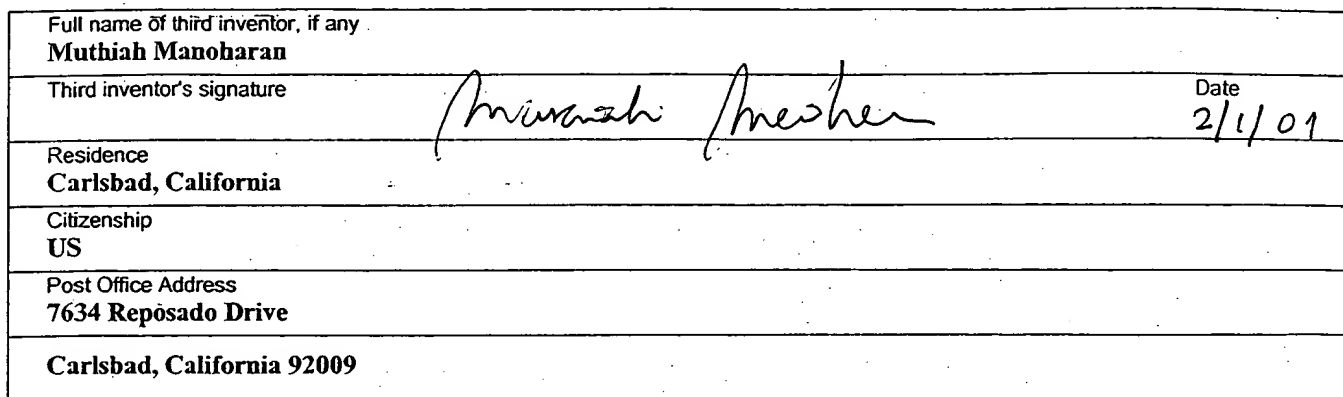 Full name of third inventor, if any
Muthiah Manoharan
Third inventor's signature
Date
2/1/01
Residence
Carlsbad, California
Citizenship
US
Post Office Address
7634 Reposado Drive
Carlsbad, California 92009